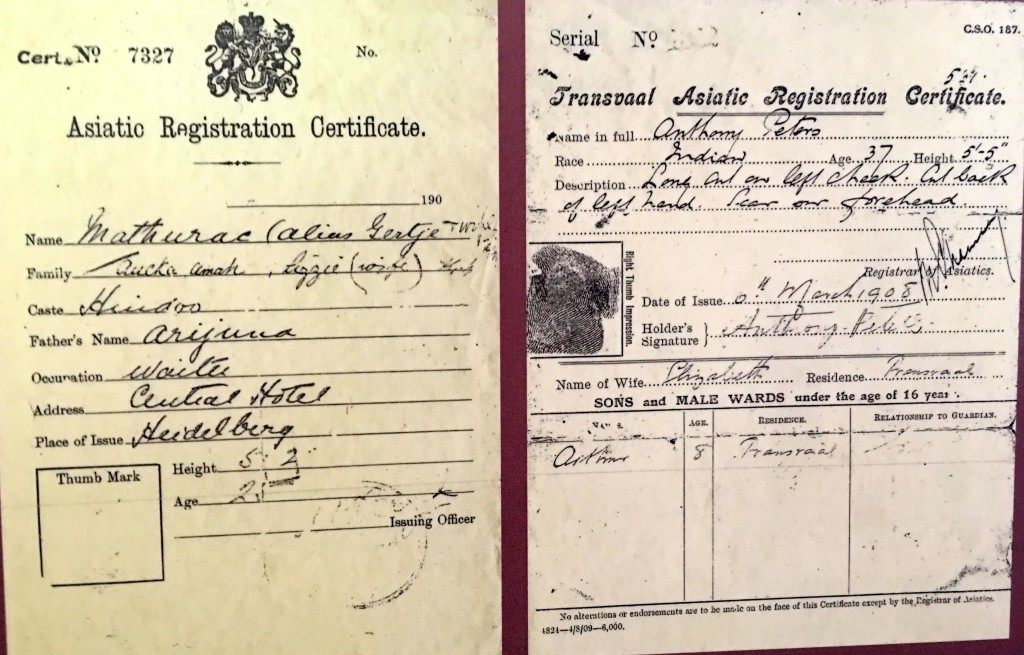 Cert. No 7327
No.
Asiatic Registration Certificate.
190
Name Mathurac (alias Gertje
Family amah, Lizzie (wife)
Caste Hindoo
Father's Name Arijuna
Occupation Waiter
Address Central Hotel
Place of Issue Heidelberg
Thumb Mark
Height 5 2
Age 2
Issuing Officer
C.S.O. 187.
Serial No
Transvaal Asiatic Registration Certificate.
Name in full Anthony Peters
Race Indian Age 37 Height 5'-5"
Description Long cut on left cheek. Cut back
of left hand. Scar on forehead
Right Thumb Impression.
Registrar of Asiatics.
Date of Issue 6th March 1908
Holder's
Signature } Anthony Peters
Name of Wife Elizabeth Residence Transvaal
SONS and MALE WARDS under the age of 16 years.
NAMES. AGE. RESIDENCE. RELATIONSHIP TO GUARDIAN.
Arthur 8 Transvaal
No alterations or endorsements are to be made on the face of this Certificate except by the Registrar of Asiatics.
4824—4/8/09—6,000.